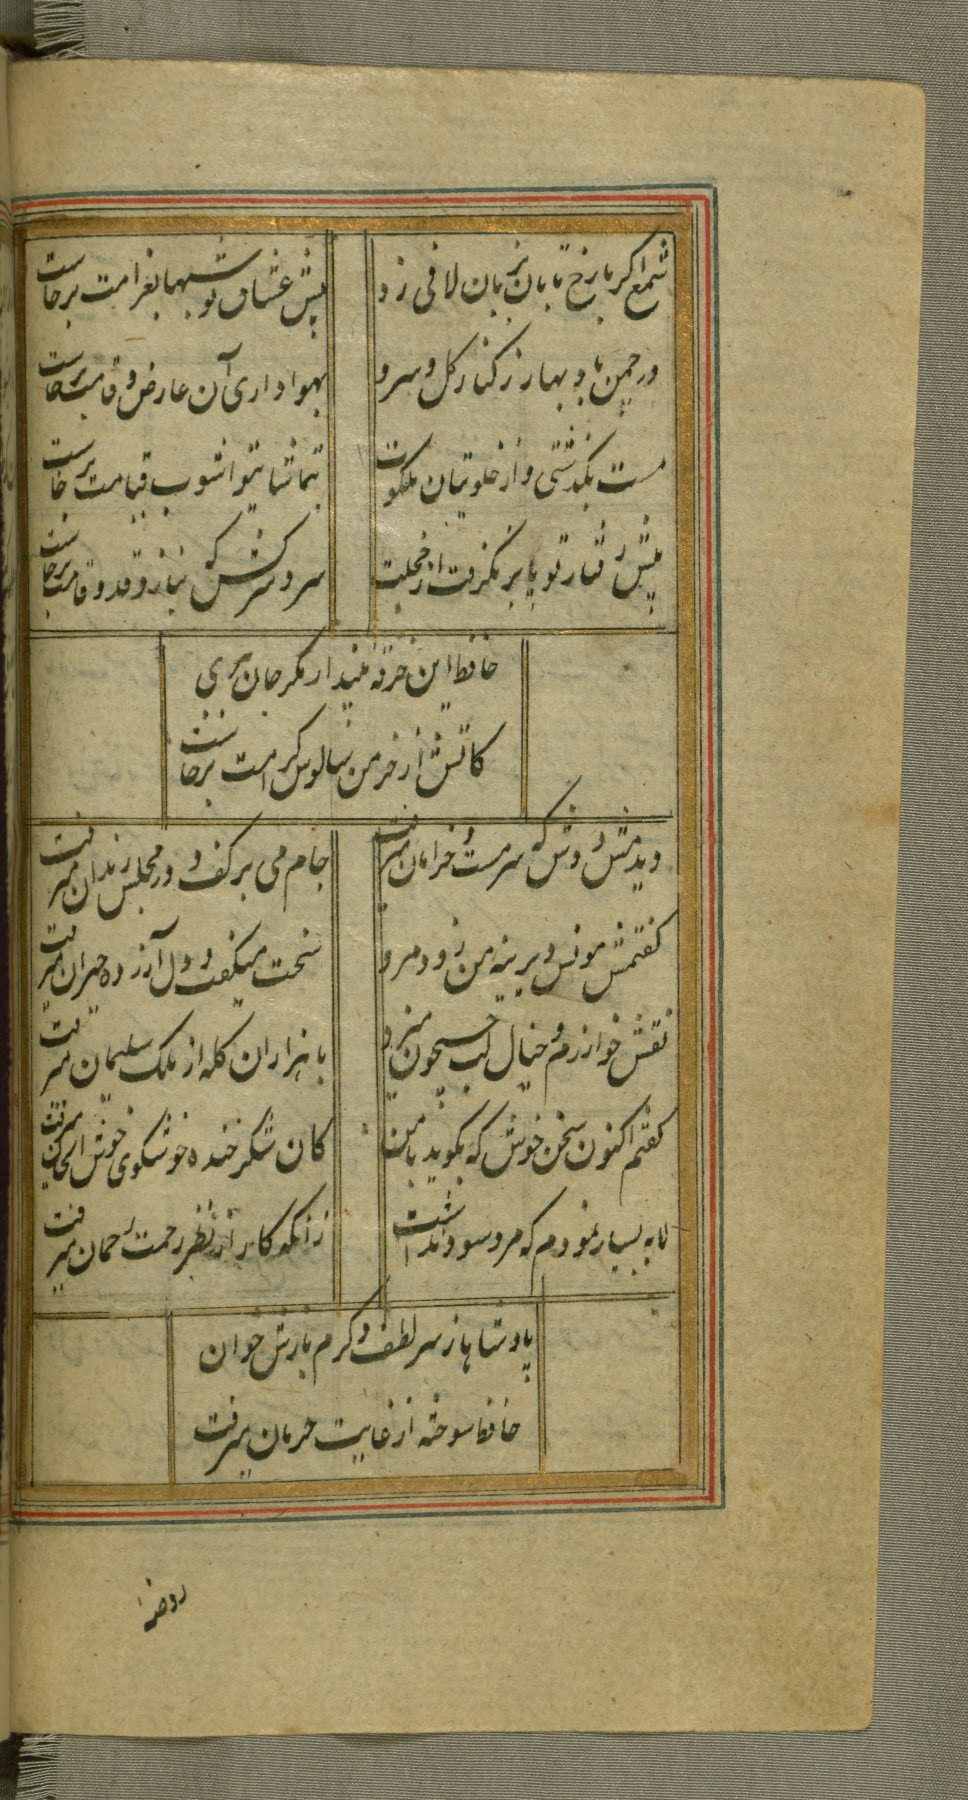 شمع اگر با رخ تابان بزبان لافی زد پیش عشاق تو شبها بغرامت برخاست
در چمن باد بهار ز کنار گل و سرو بهواداری آن عارض و قامت برخاست
مست بگذشتی و از خلوتیان ملکوت بتماشای تو آشوب قیامت برخاست
پیش رفتار تو پا بر نگرفت از خجلت سرو سرکش که بناز و قد و قامت برخاست
حافظ این خرقه بیندار مگر جان ببری
کاتش از خرمن سالوس کرامت برخاست
دیدمش دوش که سرمست و خرامان میرفت جام می بر کف و در مجلس رندان میرفت
گفتمش مونس دیرینه من زود مرو سخت میگفت و دل آزرده حیران میرفت
نقش خوارزم و خیال لب جیحون میزد با هزاران گله از ملک سلیمان میرفت
گفتم اکنون سخن خوش که بگوید با من کان شکر خنده خوشگوی خوش الحان میرفت
لابه بسیار نمودم که مرو سود نداشت زانکه کار از نظر رحمت رحمان میرفت
پادشاها ز سر لطف و کرم بازش خوان
حافظ سوخته از غایت حرمان میرفت
روضهٔ